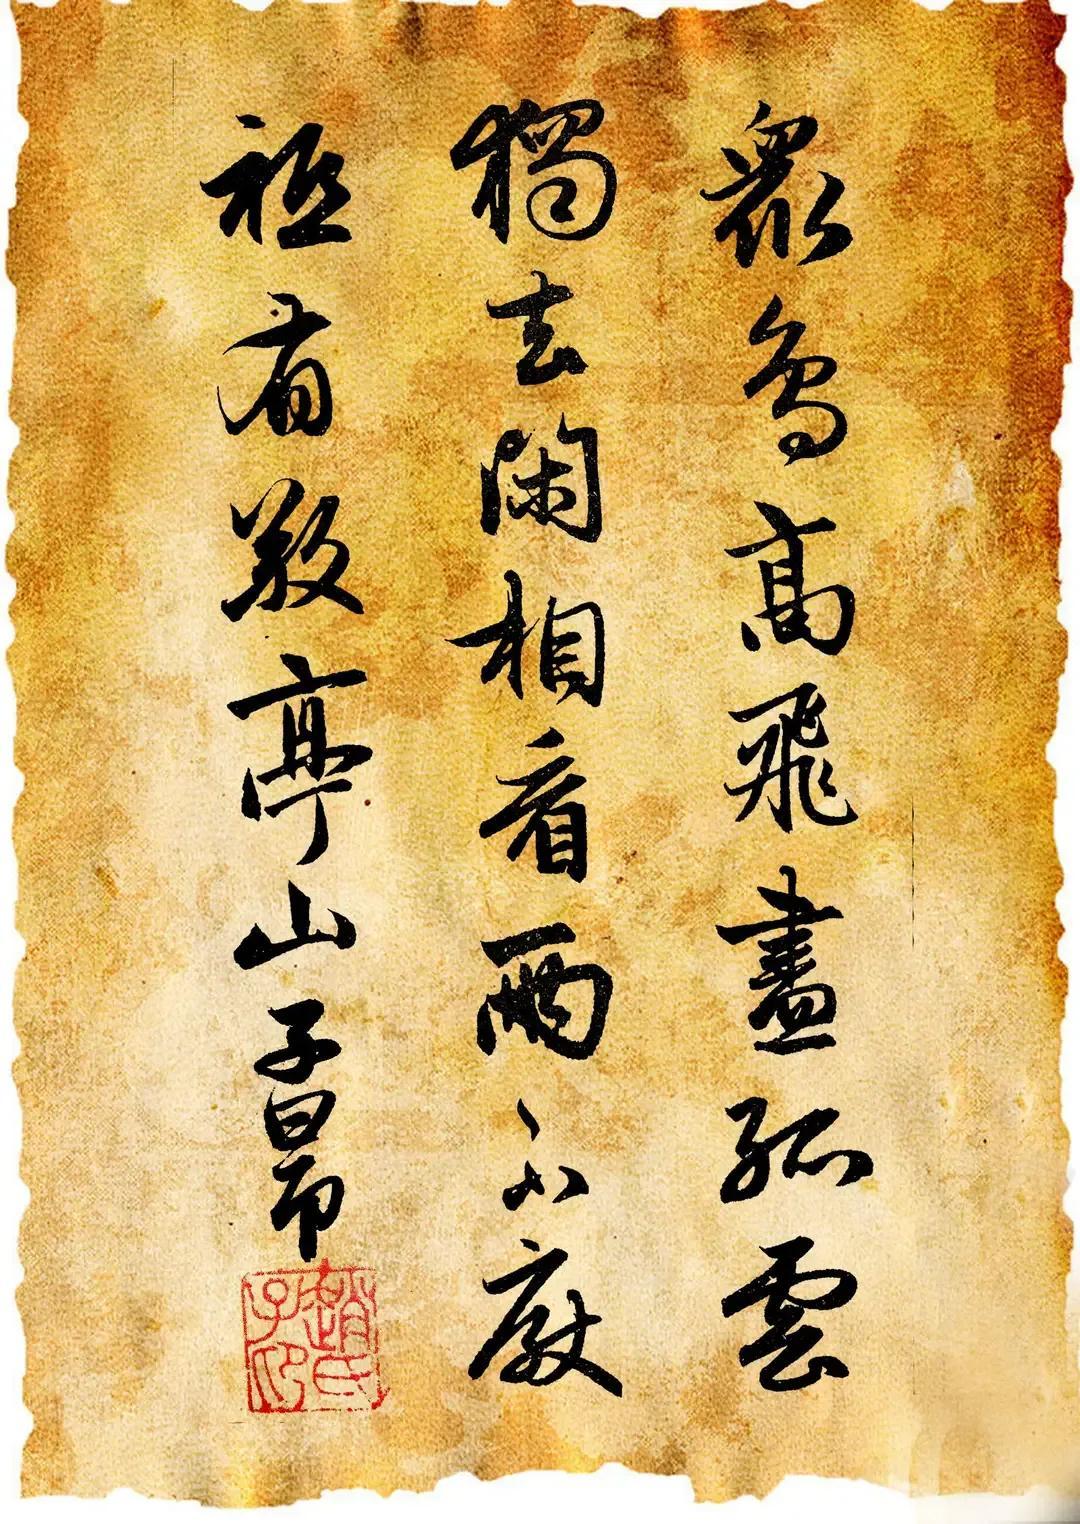 眾鳥高飛盡孤雲
獨去閑相看兩不厭
祗有敬亭山子昂
趙氏子昂